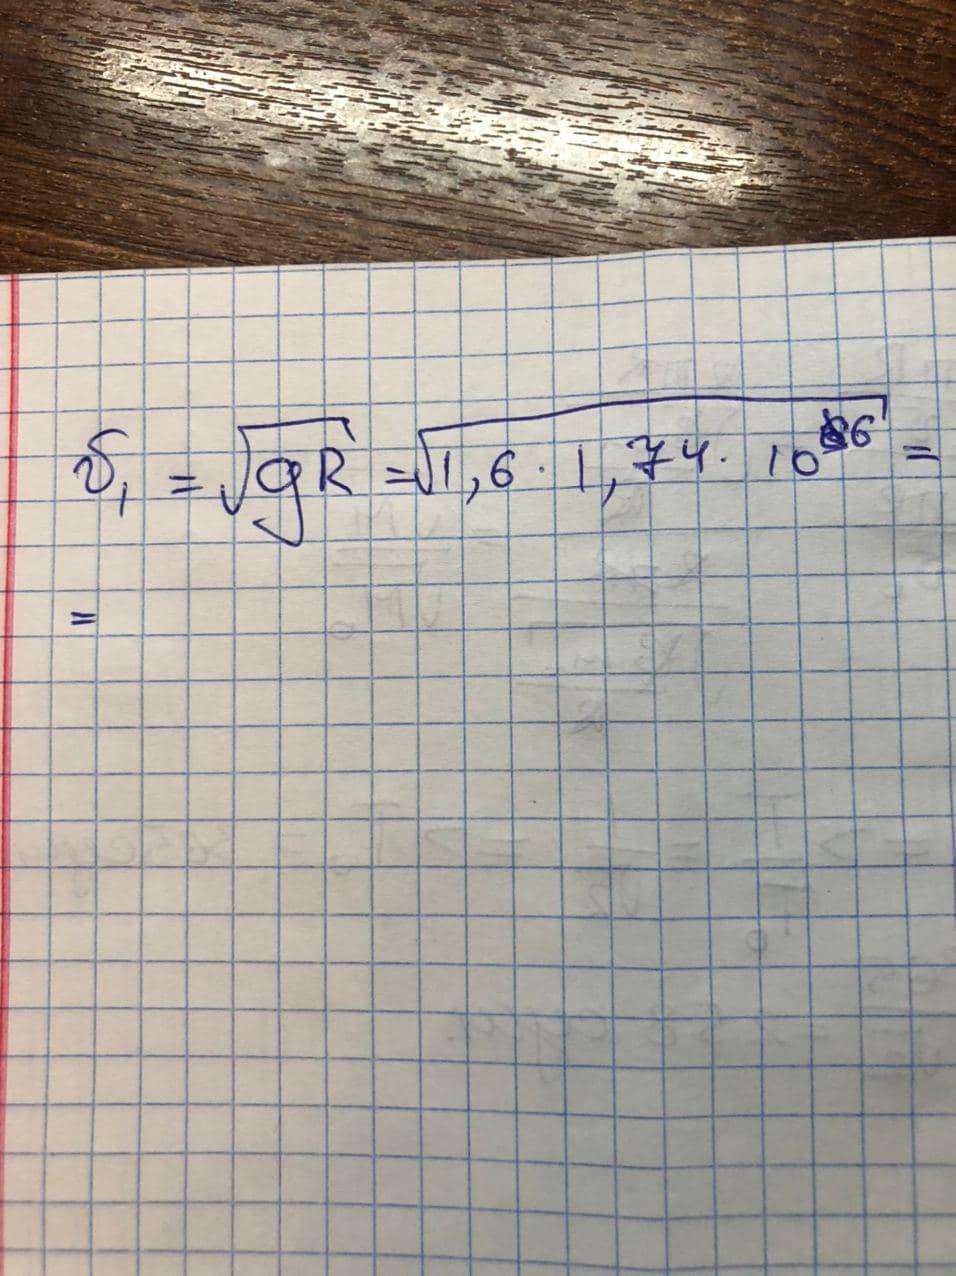 υ₁ = √gR = √1,6 · 1,74 · 10⁶ =
=